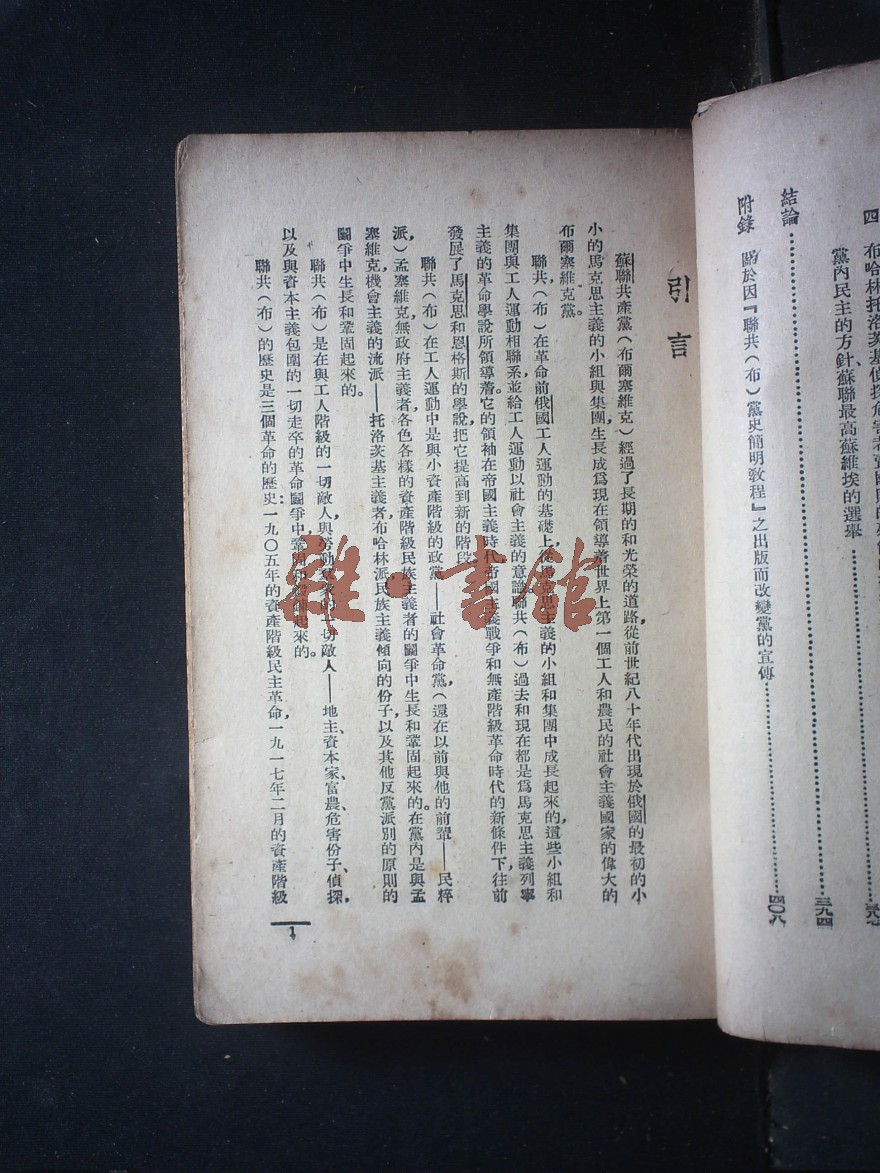 四 布哈林托洛茨基偵探危害者
黨內民主的方針、蘇聯最高蘇維埃的選舉…………
結論…………三九四
附錄 關於因『聯共（布）黨史簡明教程』之出版而改變黨的宣傳…………四〇八
引言
蘇聯共產黨（布爾塞維克）經過了長期的和光榮的道路，從前世紀八十年代出現於俄國的最初的小
小的馬克思主義的小組與集團，生長成為現在領導著世界上第一個工人和農民的社會主義國家的偉大的
布爾塞維克黨。
聯共（布）在革命前俄國工人運動的基礎上，從馬克思主義的小組和集團中成長起來的，這些小組和
集團與工人運動相聯系並給工人運動以社會主義的意識。聯共（布）過去和現在都是爲馬克思主義列寧
主義的革命學說所領導着。它的領袖在帝國主義時代，帝國主義戰爭和無產階級革命時代的新條件下，往前
發展了馬克思和恩格斯的學說，把它提高到新的階段。
聯共（布）在工人運動中是與小資產階級的政黨——社會革命黨（還在以前與他的前輩——民粹
派），孟塞維克，無政府主義者，各色各樣的資產階級民族主義者的鬭爭中生長和鞏固起來的。在黨內是與孟
塞維克，機會主義的流派——托洛茨基主義者，布哈林派，民族主義傾向的份子，以及其他反黨派別的原則的
鬭爭中生長和鞏固起來的。
聯共（布）是在與工人階級的一切敵人，與勞動羣衆的一切敵人——地主、資本家、富農、危害份子、偵探，
以及與資本主義包圍的一切走卒的革命鬭爭中，鞏固和鍛鍊起來的。
聯共（布）的歷史是三個革命的歷史：一九〇五年的資產階級民主革命，一九一七年二月的資產階級
1
雜·書館